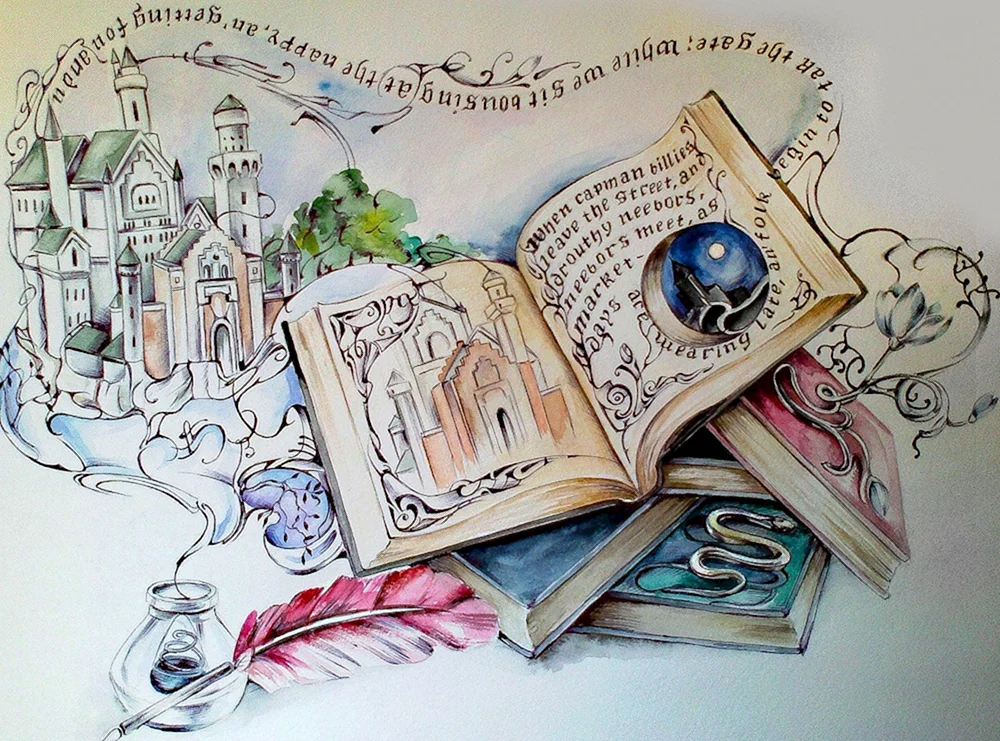 When capman billies
leave the street, and
drouthy neebors,
neebors meet, as
market-
days are
wearing
late, an folk
begin to tak the gate; While we sit bousing at the nappy, an' getting fou and u